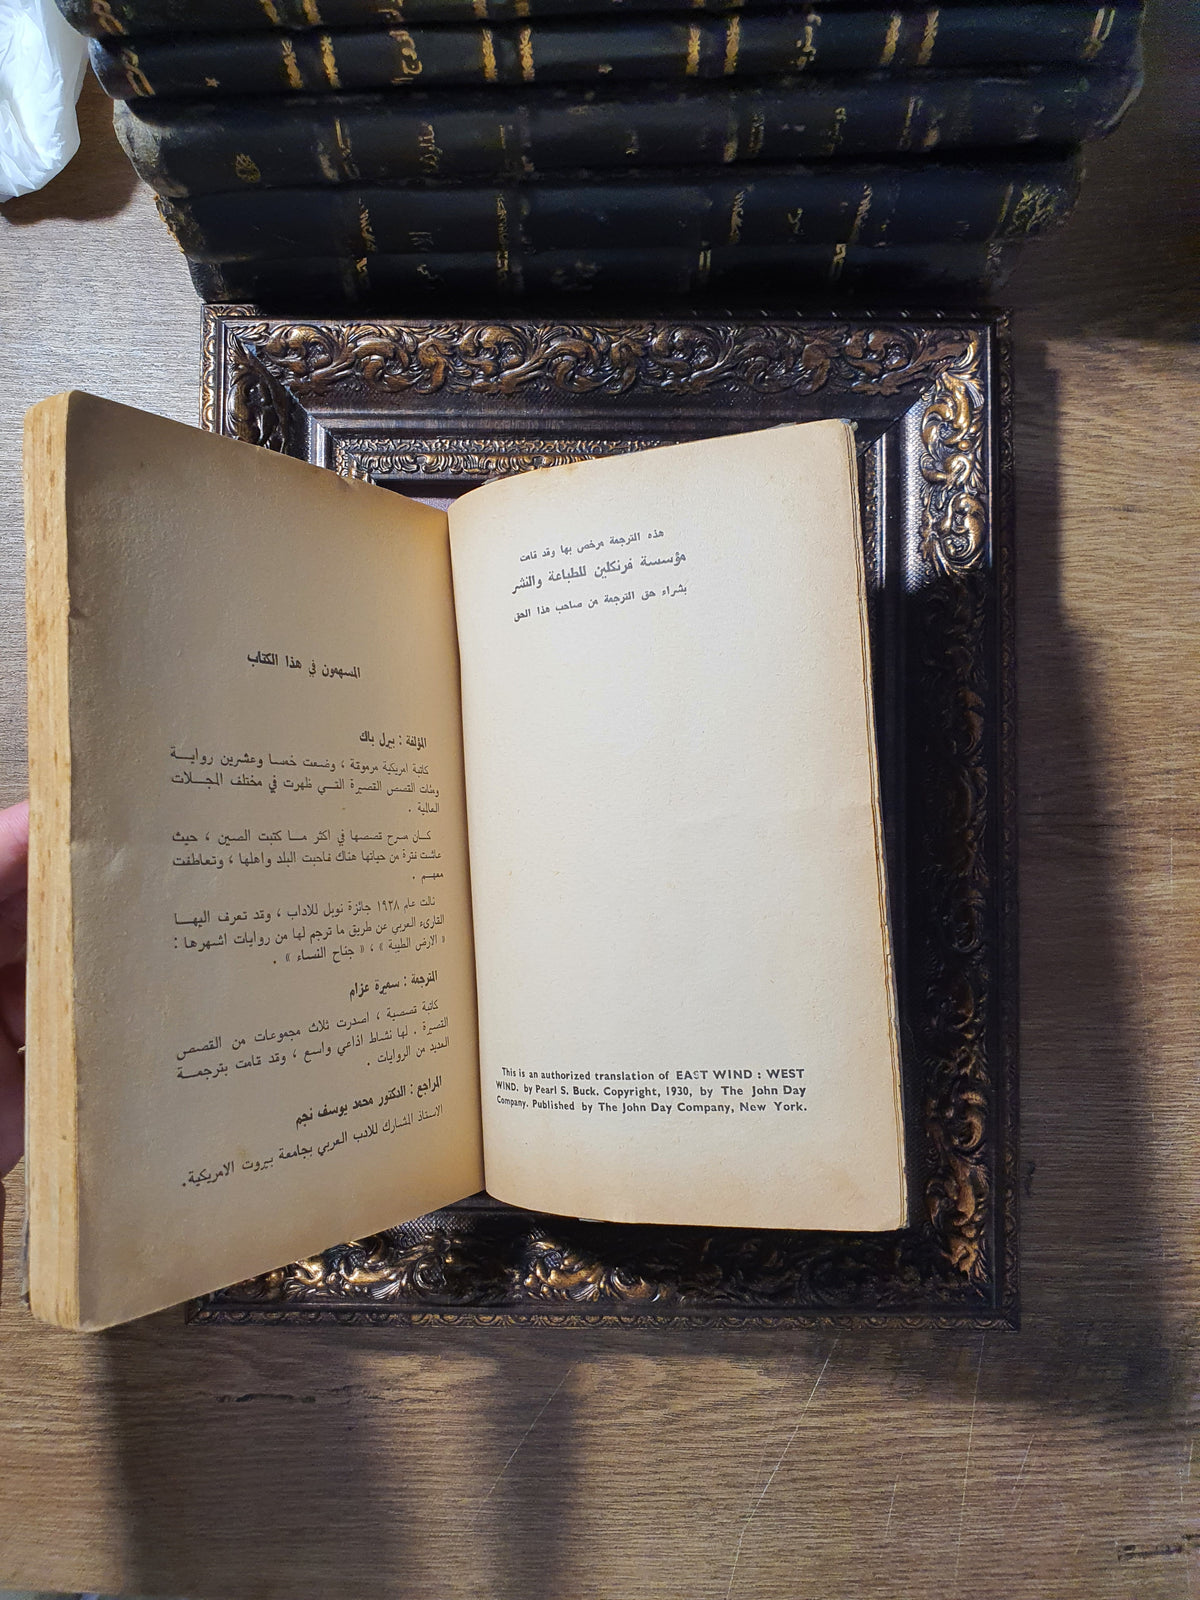 هذه الترجمة مرخص بها وقد قامت
مؤسسة فرنكلين للطباعة والنشر
بشراء حق الترجمة من صاحب هذا الحق
This is an authorized translation of EAST WIND : WEST
WIND. by Pearl S. Buck. Copyright, 1930, by The John Day
Company. Published by The John Day Company, New York.
المسهمون في هذا الكتاب
المؤلفة : بيرل باك
كاتبة امريكية مرموقة ، وضعت خمسا وعشرين روايـــة
ومئات القصص القصيرة التـــي ظهرت في مختلف المجـــلات
العالمية .
كـــان مسرح قصصها في اكثر مـــا كتبت الصين ، حيث
عاشت فترة من حياتها هناك فاحبت البلد واهلها ، وتعاطفت
معهـــم .
نالت عام ١٩٣٨ جائزة نوبل للاداب ، وقد تعرف اليهـــا
القارىء العربي عن طريق ما ترجم لها من روايات اشهرها :
« الارض الطيبة » ، « جناح النساء » .
المترجمة : سميرة عزام
كاتبة قصصية ، اصدرت ثلاث مجموعات من القصص
القصيرة . لها نشاط اذاعي واسع ، وقد قامت بترجمـــة
العديد من الروايات .
المراجع : الدكتور محمد يوسف نجم
الاستاذ المشارك للادب العربي بجامعة بيروت الامريكية .